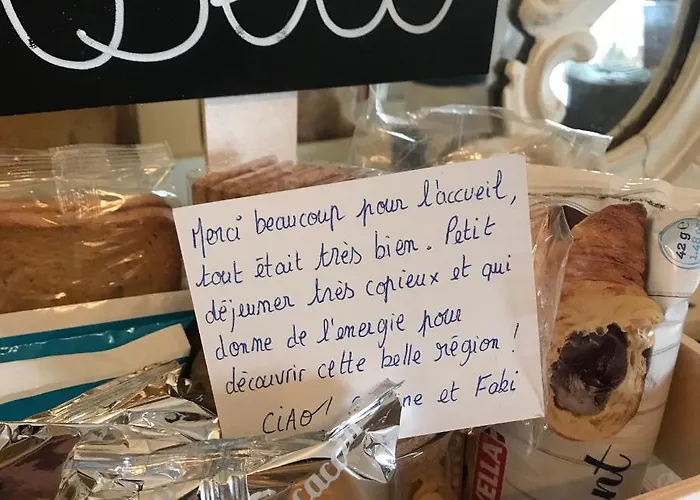 Merci beaucoup pour l'accueil,
tout était très bien. Petit
déjeuner très copieux et qui
donne de l'energie pour
découvrir cette belle région !
CiAO! et Faki
42 g e
cacao